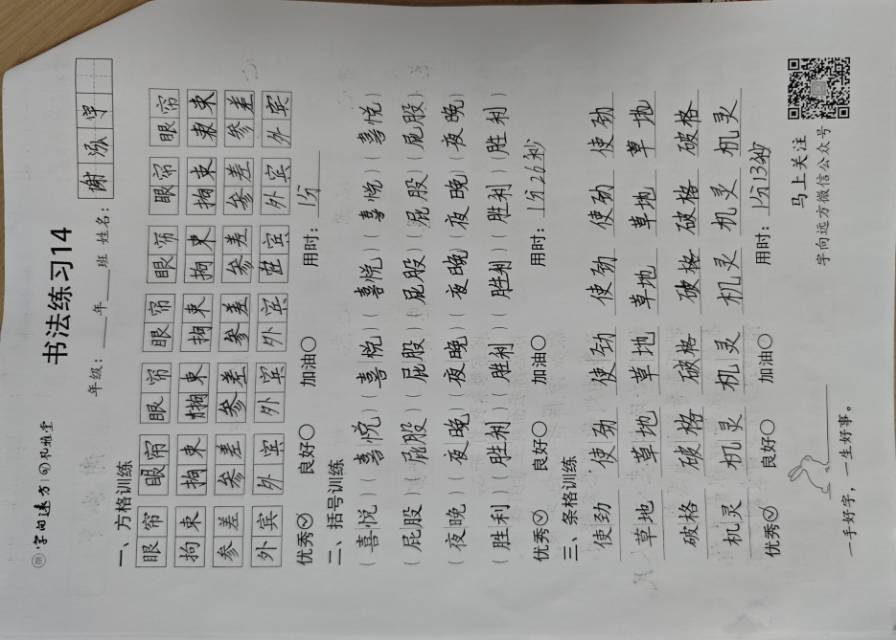 字向远方
书法练习14
年级：____年____班 姓名：谢泓宇
一、方格训练
眼帘 眼帘 眼帘 眼帘 眼帘 眼帘 眼帘
拘束 拘束 拘束 拘束 拘束 拘束 束
参差 参差 参差 参差 参差 参差 参差
外宾 外宾 外宾 外宾 宾 外宾 外宾
优秀 良好 加油 用时：1分
二、括号训练
（喜悦）（喜悦）（喜悦）（喜悦）（喜悦）（喜悦）
（屁股）（屁股）（屁股）（屁股）（屁股）（屁股）
（夜晚）（夜晚）（夜晚）（夜晚）（夜晚）（夜晚）
（胜利）（胜利）（胜利）（胜利）（胜利）（胜利）
优秀 良好 加油 用时：1分26秒
三、条格训练
使劲 使劲 使劲 使劲 使劲 使劲
草地 草地 草地 草地 草地 草地
破格 破格 破格 破格 破格 破格
机灵 机灵 机灵 机灵 机灵 机灵
优秀 良好 加油 用时：1分13秒
一手好字，一生好事。
马上关注
字向远方微信公众号